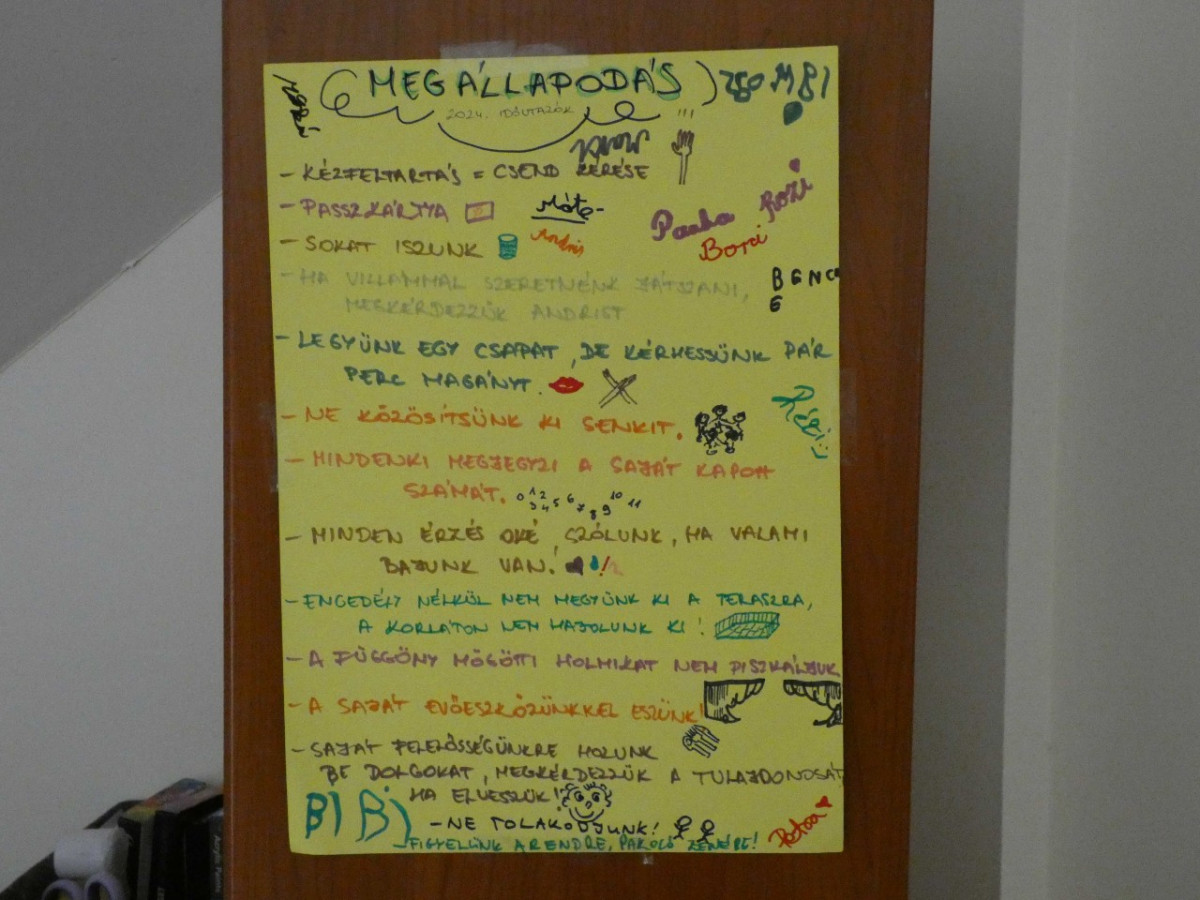 MEGÁLLAPODÁS
ZSOMBI
2024. IDŐUTAZÓK
- KÉZFELTARTÁS = CSEND KÉRÉSE
- PASSZKÁRTYA
Máté
Rozi
- SOKAT ISZUNK
András
Borci
- HA VILLÁMMAL SZERETNÉNK JÁTSZANI,
BENCE
MEGKÉRDEZZÜK ANDRIST
- LEGYÜNK EGY CSAPAT, DE KÉRHESSÜNK PÁR
PERC MAGÁNYT.
- NE KÖZÖSÍTSÜNK KI SENKIT.
Rézi
- MINDENKI MEGJEGYZI A SAJÁT KAPOTT
SZÁMÁT. 0 1 2 3 4 5 6 7 8 9 10 11
- MINDEN ÉRZÉS OKÉ, SZÓLUNK, HA VALAMI
BAJUNK VAN!
- ENGEDÉLY NÉLKÜL NEM MEGYÜNK KI A TERASZRA,
A KORLÁTON NEM HAJOLUNK KI!
- A FÜGGÖNY MÖGÖTTI HOLMIKAT NEM PISZKÁLJUK
- A SAJÁT EVŐESZKÖZÜNKKEL ESZÜNK!
- SAJÁT FELELŐSSÉGÜNKRE HOZUNK
BE DOLGOKAT, MEGKÉRDEZZÜK A TULAJDONOSÁT,
HA ELVESSZÜK!
BIBI
- NE TOLAKODJUNK!
- FIGYELÜNK A RENDRE, PAKOLÓ ZENÉRE!